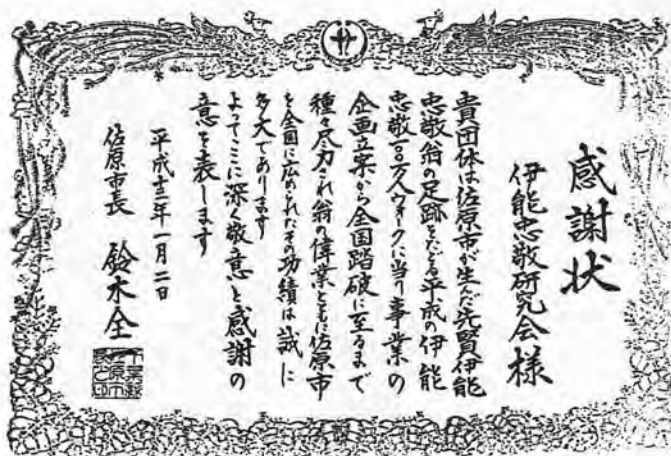 感謝状
伊能忠敬研究会様
貴団体は佐原市が生んだ先賢伊能
忠敬翁の足跡をたどる平成の伊能
忠敬一〇〇万人ウォークに当り事業の
企画立案から全国踏破に至るまで
種々尽力され翁の偉業とともに佐原市
を全国に広められたその功績は誠に
多大であります
よってここに深く敬意と感謝の
意を表します
平成十三年一月二日
佐原市長 鈴木全一